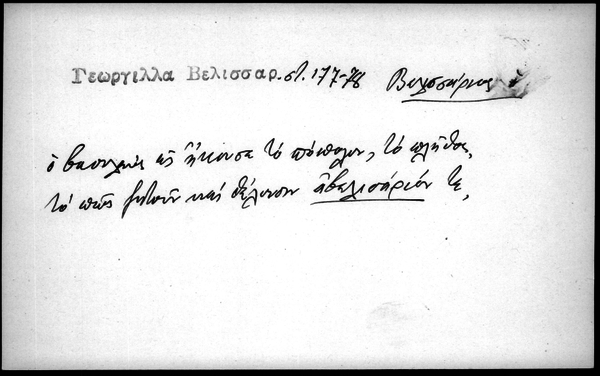 Γεωργιλλα Βελισσαρ. στ. 177-78 Βελισσάριος
ὁ βασιλεὺς ὡς ἤκουσε τὸ πόπολον, τὸ πλῆθος,
τὸ πῶς ζητοῦν καὶ θέλουσιν Βελισάριόν τε,